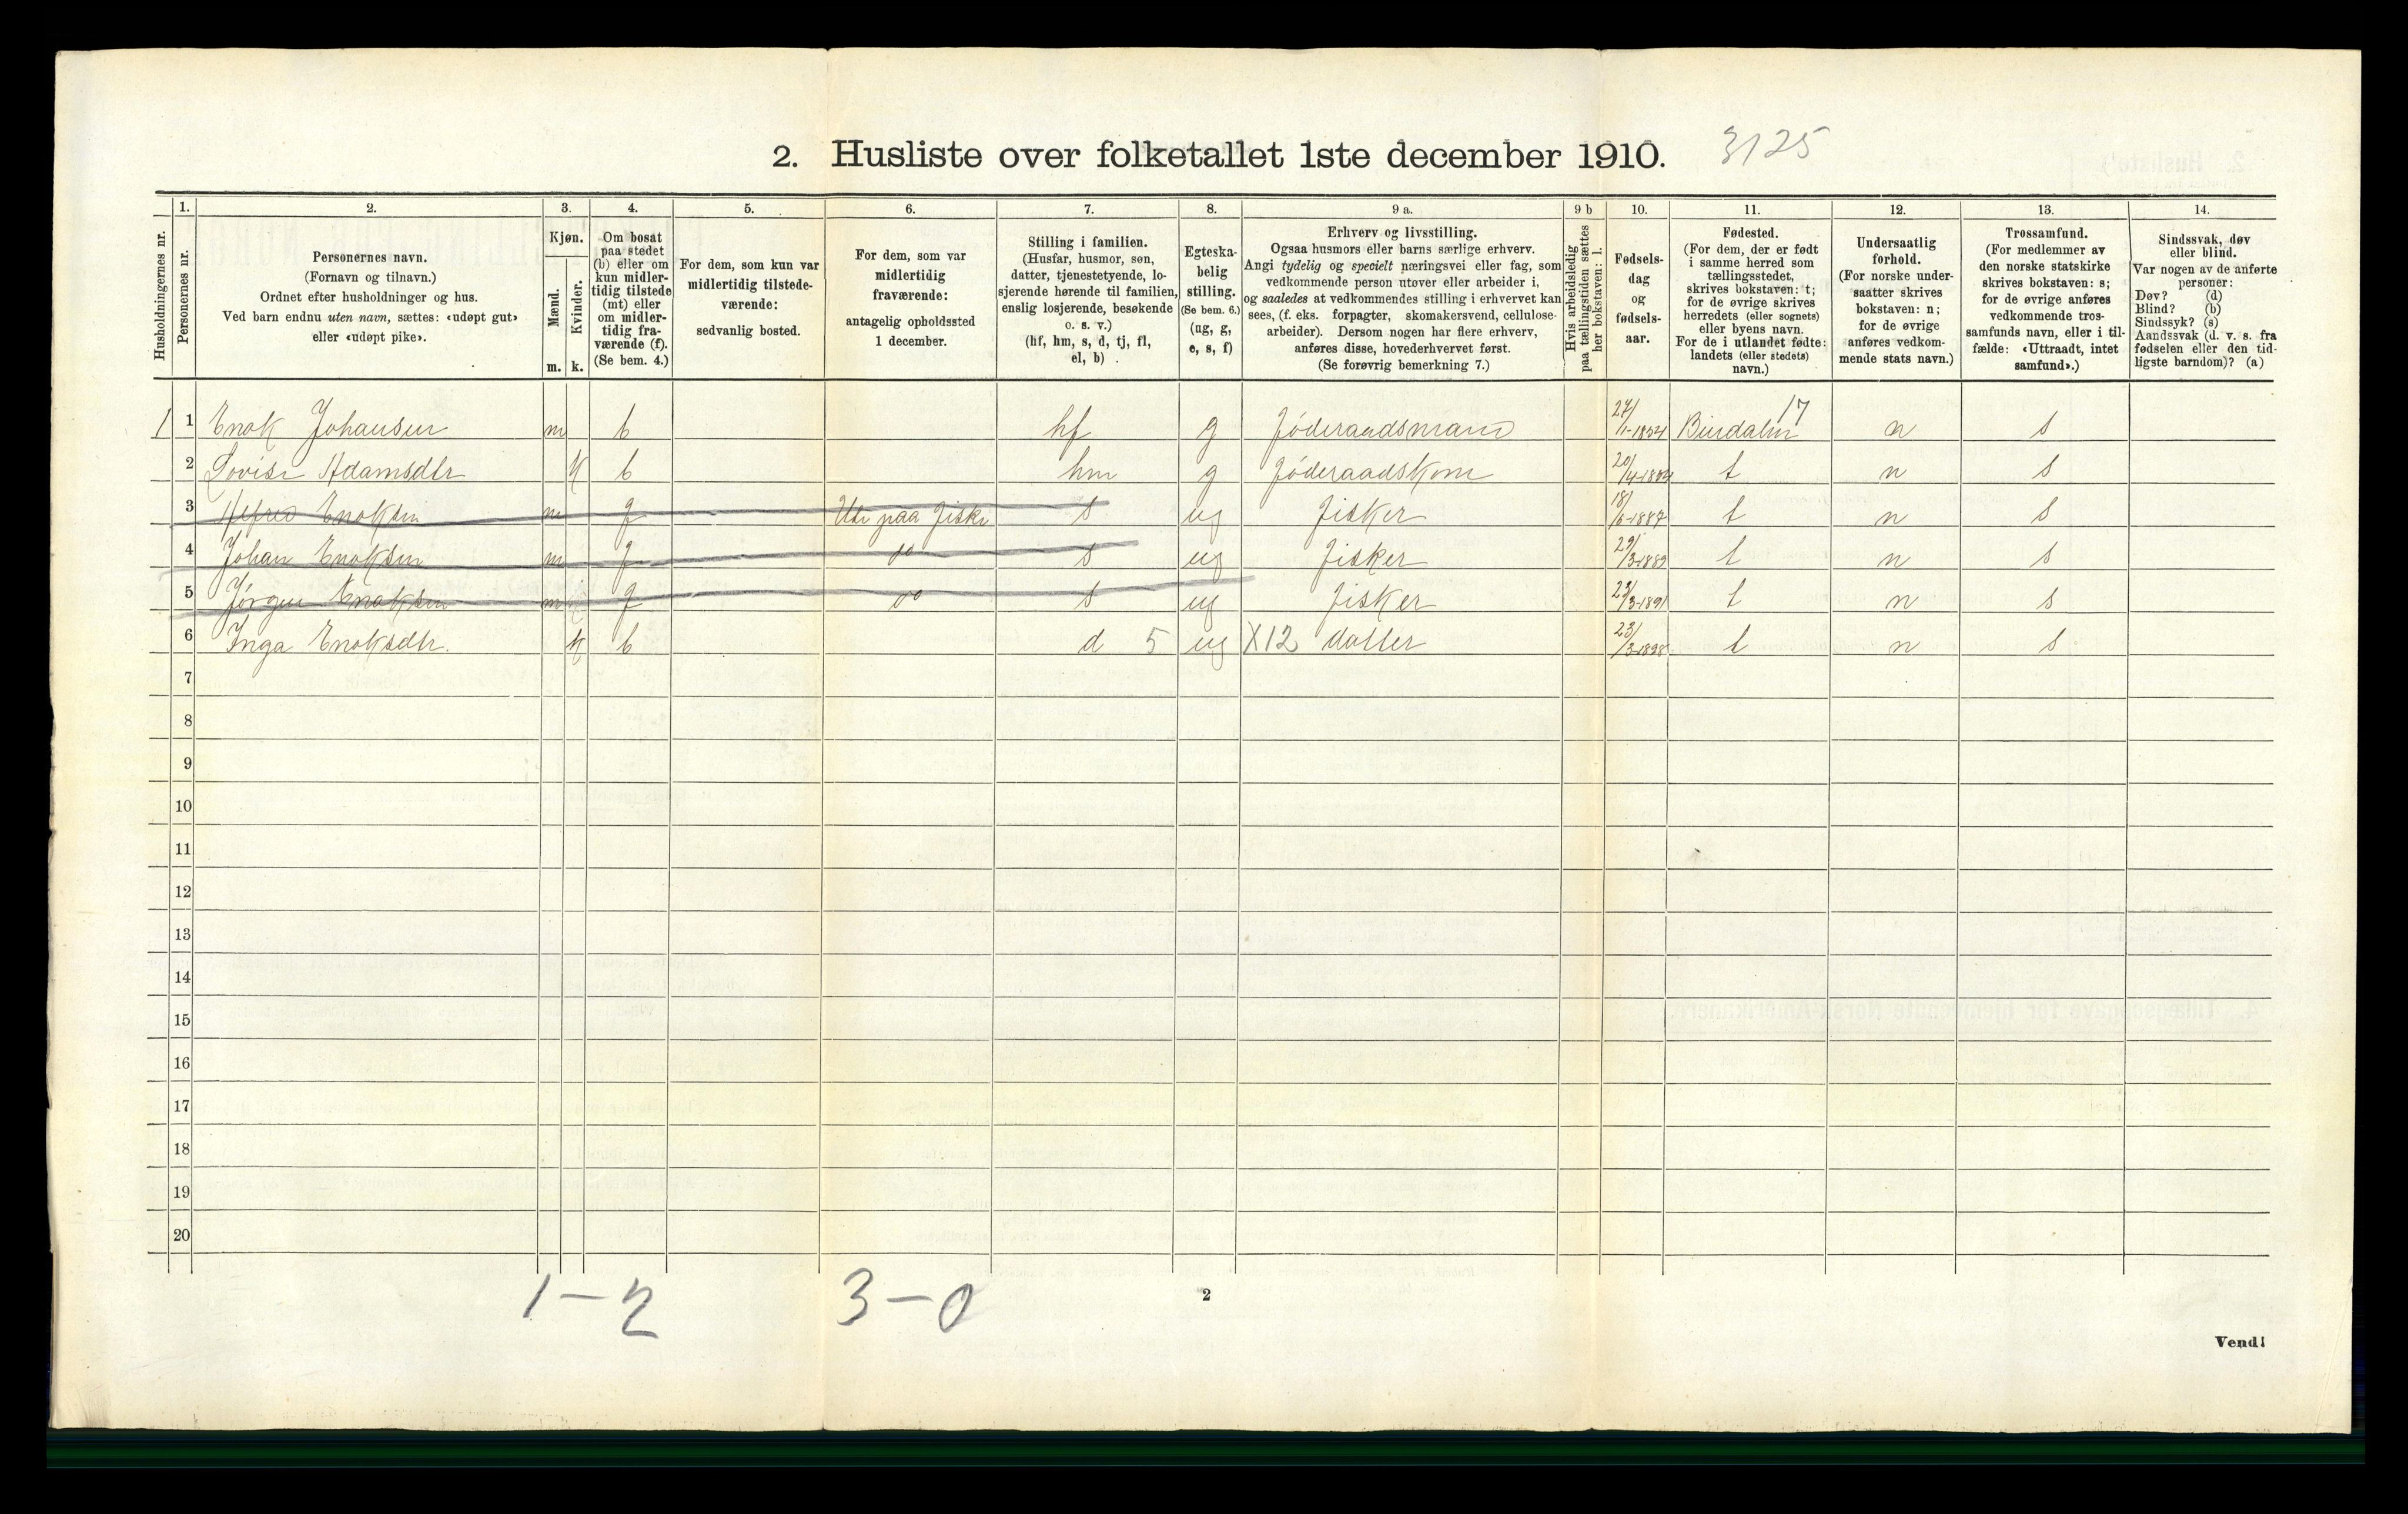 2. Husliste over folketallet 1ste december 1910. 3125
Husholdningernes nr.
1.
Personernes nr.
2.
Personernes navn.
(Fornavn og tilnavn.)
Ordnet efter husholdninger og hus.
Ved barn endnu uten navn, sættes: «udøpt gut»
eller «udøpt pike».
3.
Kjøn.
Mænd.
Kvinder.
m. k.
4.
Om bosat
paa stedet
(b) eller om
kun midler-
tidig tilstede
(mt) eller
om midler-
tidig fra-
værende (f).
(Se bem. 4.)
5.
For dem, som kun var
midlertidig tilstede-
værende:
sedvanlig bosted.
6.
For dem, som var
midlertidig
fraværende:
antagelig opholdssted
1 december.
7.
Stilling i familien.
(Husfar, husmor, søn,
datter, tjenestetyende, lo-
sjerende hørende til familien,
enslig losjerende, besøkende
o. s. v.)
(hf, hm, s, d, tj, fl,
el, b)
8.
Egteska-
belig
stilling.
(Se bem. 6.)
(ug, g,
e, s, f)
9 a.
Erhverv og livsstilling.
Ogsaa husmors eller barns særlige erhverv.
Angi tydelig og specielt næringsvei eller fag, som
vedkommende person utøver eller arbeider i,
og saaledes at vedkommendes stilling i erhvervet kan
sees, (f. eks. forpagter, skomakersvend, cellulose-
arbeider). Dersom nogen har flere erhverv,
anføres disse, hovederhvervet først.
(Se forøvrig bemerkning 7.)
9 b
Hvis arbeidsledig
paa tællingstiden sættes
her bokstaven: l.
10.
Fødsels-
dag
og
fødsels-
aar.
11.
Fødested.
(For dem, der er født
i samme herred som
tællingsstedet,
skrives bokstaven: t;
for de øvrige skrives
herredets (eller sognets)
eller byens navn.
For de i utlandet fødte:
landets (eller stedets)
navn.)
12.
Undersaatlig
forhold.
(For norske under-
saatter skrives
bokstaven: n;
for de øvrige
anføres vedkom-
mende stats navn.)
13.
Trossamfund.
(For medlemmer av
den norske statskirke
skrives bokstaven: s;
for de øvrige anføres
vedkommende tros-
samfunds navn, eller i til-
fælde: «Uttraadt, intet
samfund».)
14.
Sindssvak, døv
eller blind.
Var nogen av de anførte
personer:
Døv? (d)
Blind? (b)
Sindssyk? (s)
Aandssvak (d. v. s. fra
fødselen eller den tid-
ligste barndom)? (a)
1 1 Enok Johansen m b hf g Føderaadsmand 24/1-1854 Bindalen 17 n s
2 Lovise Adamsdtr k b hm g Føderaadskone n s
3 Enoksen m f Ute paa fiske s ug fisker 18/6-1887 t n s
4 Johan Enoksen m f do s ug fisker 29/3-1889 t n s
5 Jørgen Enoksen m f do s ug fisker 23/3-1891 t n s
6 Inga Enoksdtr. k b d 5 ug X12 datter 23/3-1898 t n s
7
8
9
10
11
12
13
14
15
16
17
18
19
20
1-2 3-0
2
Vend!